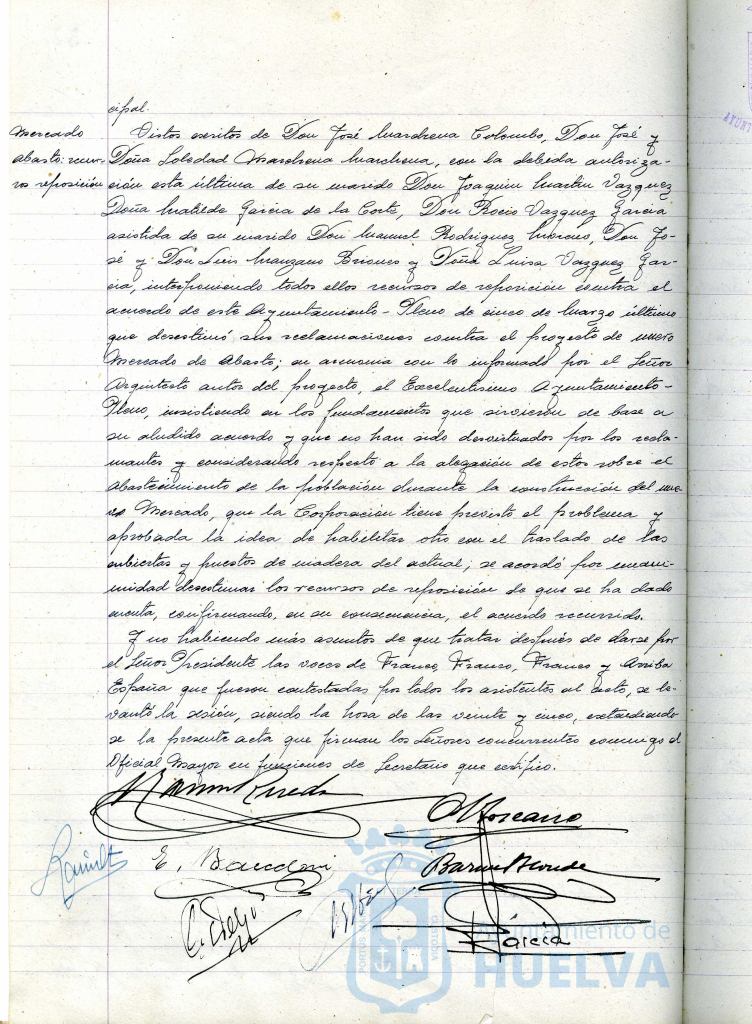 cipal.
Mercado
Abasto: recur-
sos reposición
Vistos escritos de Don José Marchena Colombo, Don José y
Doña Soledad Marchena Marchena, con la debida autoriza-
ción esta última de su marido Don Joaquin Martin Vazquez
Doña Matilde Garcia de la Corte, Don Rocio Vazquez Garcia
asistida de su marido Don Manuel Rodriguez Moreno, Don Jo-
sé y Don Luis Manzano Briones y Doña Luisa Vazquez Gar-
cia, interponiendo todos ellos recursos de reposición contra el
acuerdo de este Ayuntamiento-Pleno de cinco de Marzo último
que desestimó sus reclamaciones contra el proyecto de nuevo
Mercado de Abasto; en armonia con lo informado por el Señor
Arquitecto autor del proyecto, el Excelentisimo Ayuntamiento-
Pleno, insistiendo en los fundamentos que sirvieron de base a
su aludido acuerdo y que no han sido desvirtuados por los recla-
mantes y considerando respecto a la alegación de estos sobre el
abastecimiento de la población durante la construcción del nue-
vo Mercado, que la Corporación tiene previsto el problema y
aprobada la idea de habilitar otro con el traslado de las
cubiertas y puestos de madera del actual; se acordó por unani-
midad desestimar los recursos de reposición de que se ha dado
cuenta, confirmando, en su consecuencia, el acuerdo recurrido.
Y no habiendo más asuntos de que tratar después de darse por
el Señor Presidente las voces de Franco, Franco, Franco y Arriba
España que fueron contestadas por todos los asistentes al acto, se le-
vantó la sesión, siendo la hora de las veinte y cinco, extendiendo
se la presente acta que firman los Señores concurrentes conmigo el
Oficial Mayor en funciones de Secretario que certifico.
E.
Garcia
Ayuntamiento de
HUELVA